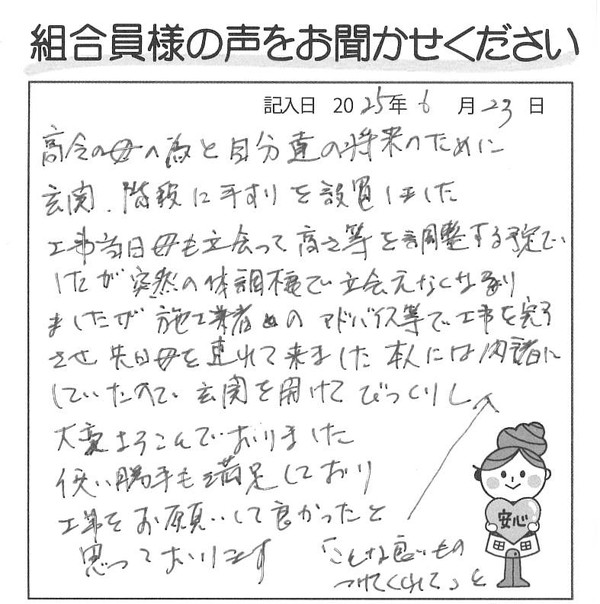 組合員様の声をお聞かせください
記入日 2025年6月23日
高令の母の為と自分達の将来のために
玄関、階段に手すりを設置しました
工事当日母も立会って高さ等を調整する予定で
したが突然の体調不良で立会えなくなり
ましたが施工業者の アドバイス等で工事を完了
させ 先日母を連れて来ました 本人には内緒に
していたので 玄関を開けてびっくりし
大変よろこんでおりました
使い勝手も満足しており
工事をお願いして良かったと
思っております
「こんな良いもの
つけてくれて」と
安心